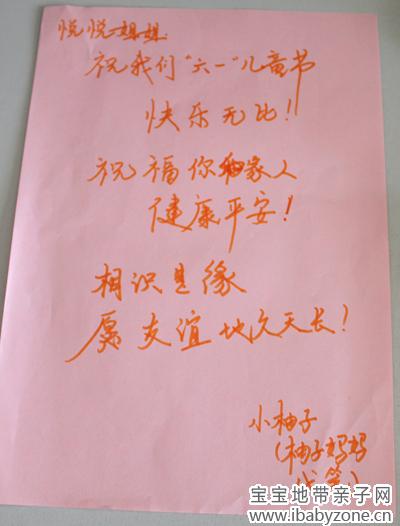 悦悦姐姐:
祝我们“六一”儿童节
快乐无比!
祝福你和家人
健康平安!
相识是缘
愿友谊地久天长!
小柚子
(柚子妈妈
代笔)
宝宝地带亲子网
www.ibabyzone.cn